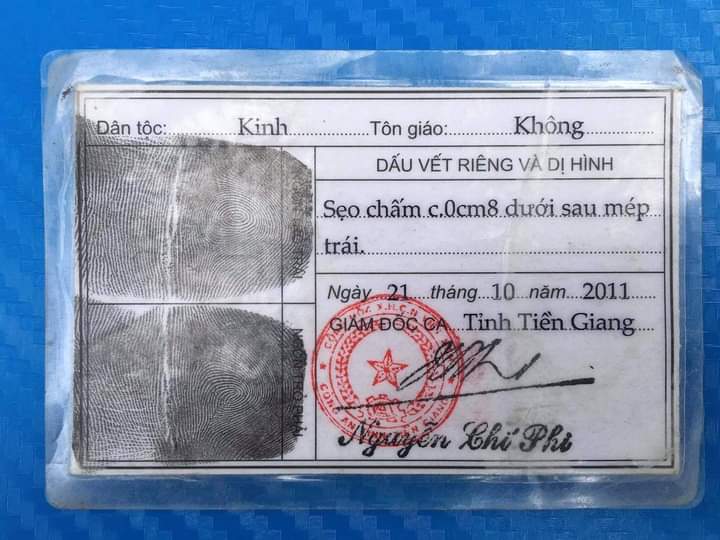 Dân tộc: Kinh Tôn giáo: Không
DẤU VẾT RIÊNG VÀ DỊ HÌNH
Sẹo chấm c.0cm8 dưới sau mép
trái.
Ngày 21 tháng 10 năm 2011
GIÁM ĐỐC CA Tỉnh Tiền Giang
Nguyễn Chí Phi